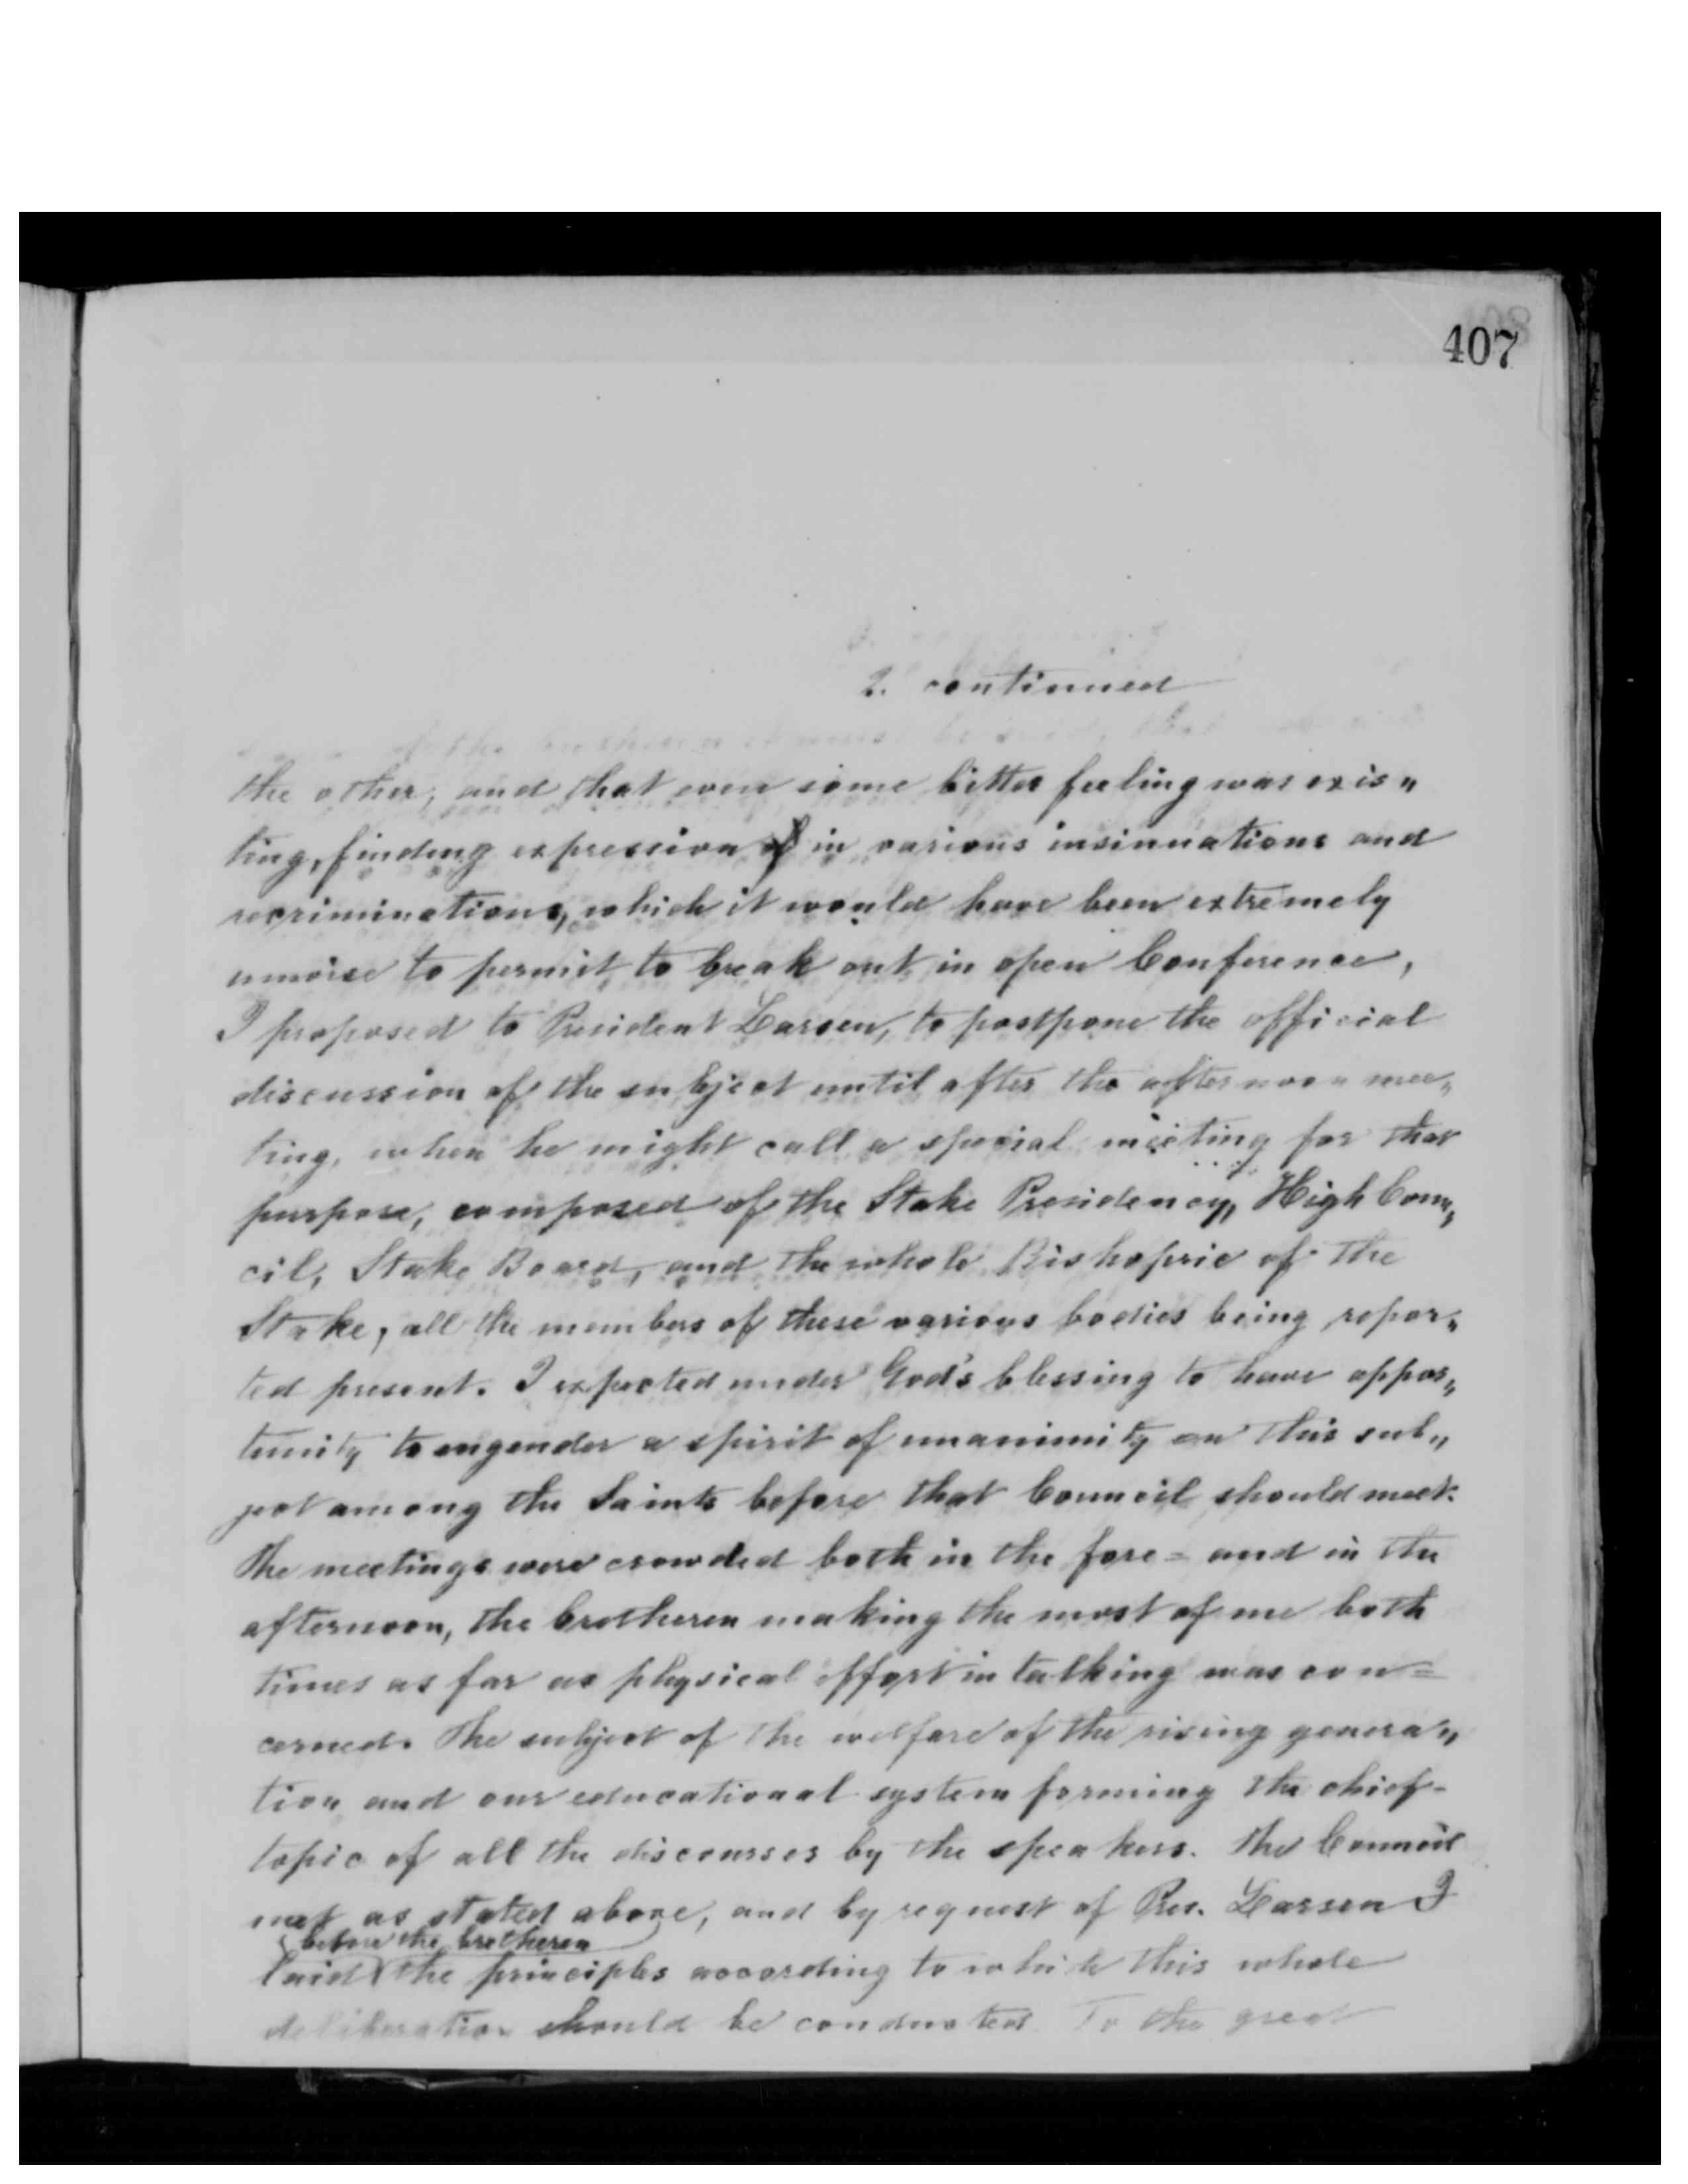 407
2. continued
the other, and that even some bitter feeling was exis„
ting, finding expression of in various insinuations and
recriminations, which it would have been extremely
unwise to permit to break out in open Conference,
I proposed to President Larsen, to postpone the official
discussion of the subject until after the afternoon mee„
ting, when he might call a special meeting for that
purpose, composed of the Stake Presidency, High Coun„
cil, Stake Board, and the whole Bishopric of the
Stake, all the members of these various bodies being repor„
ted present. I expected under God's blessing to have oppor„
tunity to engender a spirit of unanimity on this sub„
ject among the Saints before that Council should meet.
The meetings were crowded both in the fore= and in the
afternoon, the bretheren making the most of me both
times as far as physical effort in talking was con=
cerned. The subject of the welfare of the rising genera„
tion and our educational system forming the chief-
topic of all the discourses by the speakers. The Council
met as stated above, and by request of Pres. Larsen I
before the bretheren
laid the principles according to which this whole
deliberation should be conducted. To the great